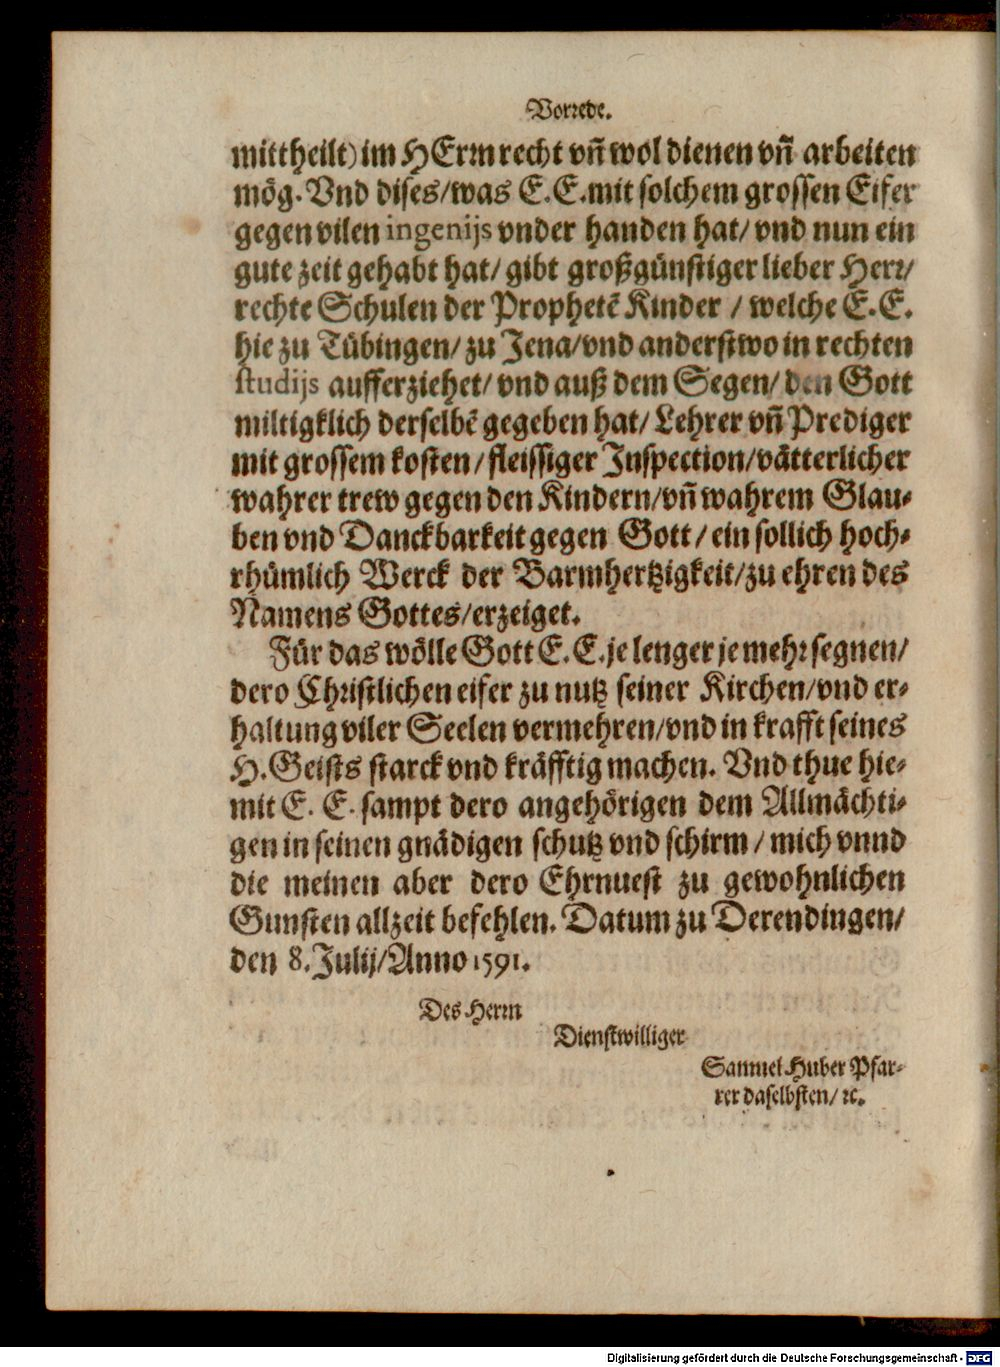 Vorrede.
mittheilt) im HErrn recht vñ wol dienen vñ arbeiten
mög. Vnd dises/was E. E. mit solchem grossen Eifer
gegen vilen ingenijs vnder handen hat/ vnd nun ein
gute zeit gehabt hat/ gibt großgünstiger lieber Herr/
rechte Schulen der Prophetẽ Kinder / welche E. E.
hie zu Tübingen/ zu Jena/vnd anderstwo in rechten
studijs aufferziehet/ vnd auß dem Segen/ den Gott
miltigklich derselbẽ gegeben hat/ Lehrer vñ Prediger
mit grossem kosten/ fleissiger Inspection/vätterlicher
wahrer trew gegen den Kindern/vñ wahrem Glau-
ben vnd Danckbarkeit gegen Gott/ ein sollich hoch-
rhümlich Werck der Barmhertzigkeit/zu ehren des
Namens Gottes/erzeiget.
Für das wölle Gott E. E. je lenger je mehr segnen/
dero Christlichen eifer zu nutz seiner Kirchen/vnd er-
haltung viler Seelen vermehren/vnd in krafft seines
H. Geists starck vnd kräfftig machen. Vnd thue hie-
mit E. E. sampt dero angehörigen dem Allmächti-
gen in seinen gnädigen schutz vnd schirm / mich vnnd
die meinen aber dero Ehrnuest zu gewohnlichen
Gunsten allzeit befehlen. Datum zu Derendingen/
den 8. Julij/Anno 1591.
Des Herrn
Dienstwilliger
Samuel Huber Pfar-
rer daselbsten/ ꝛc.
Digitalisierung gefördert durch die Deutsche Forschungsgemeinschaft - DFG